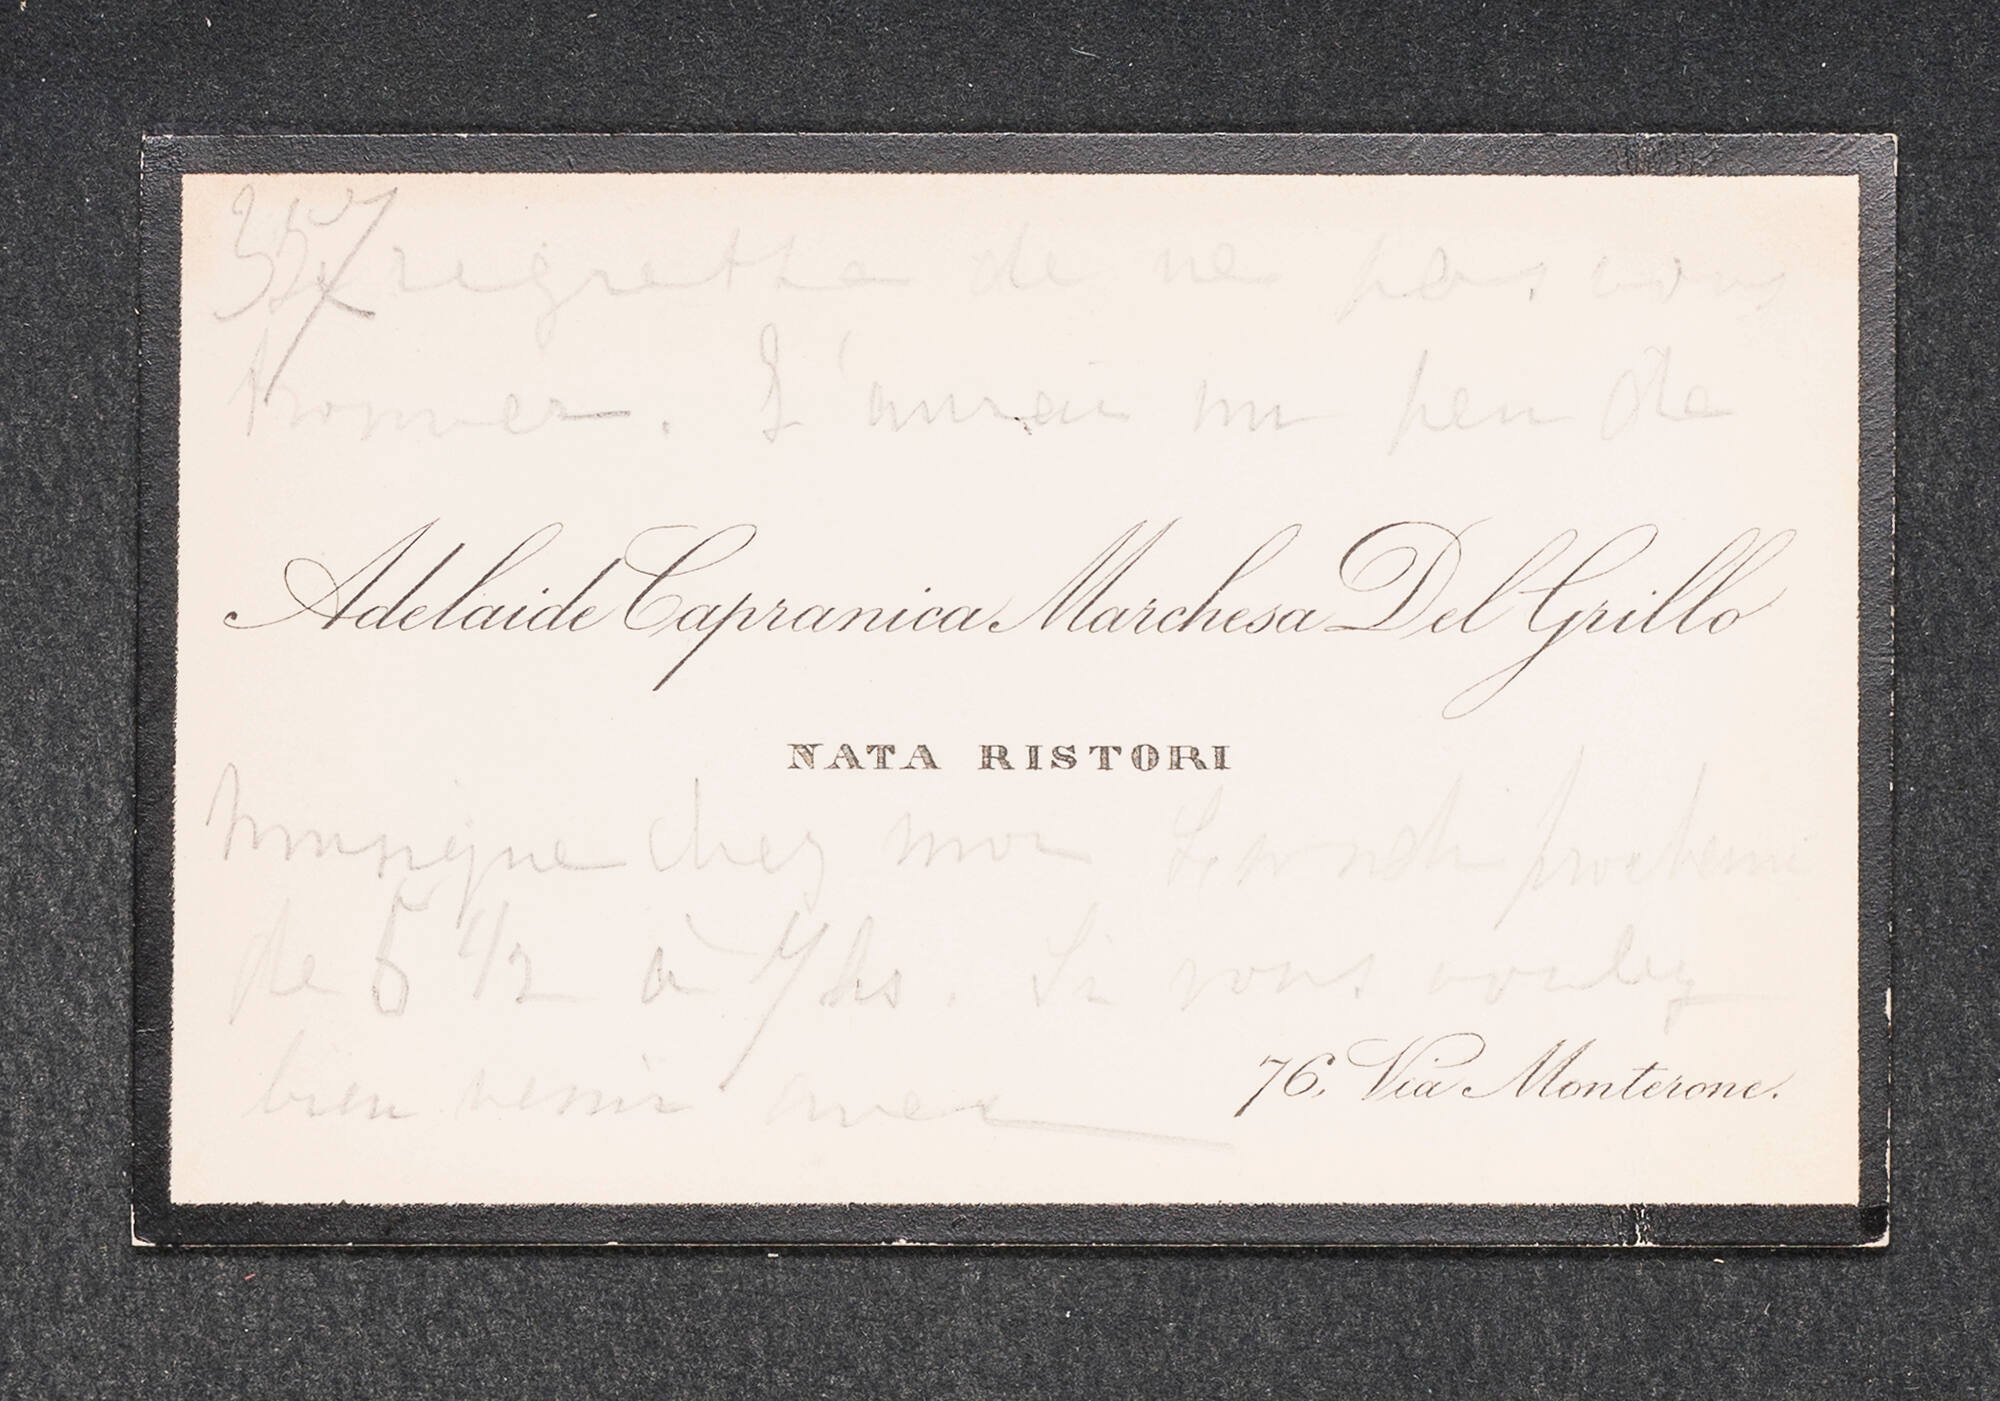 357
Je regrette de ne pas vous
trouver. J'aurai un peu de
Adelaide Capranica Marchesa Del Grillo
NATA RISTORI
musique chez moi Lundi prochain
de 5 1/2 à 7 hs. Si vous voulez
bien venir avec
76, Via Monterone.